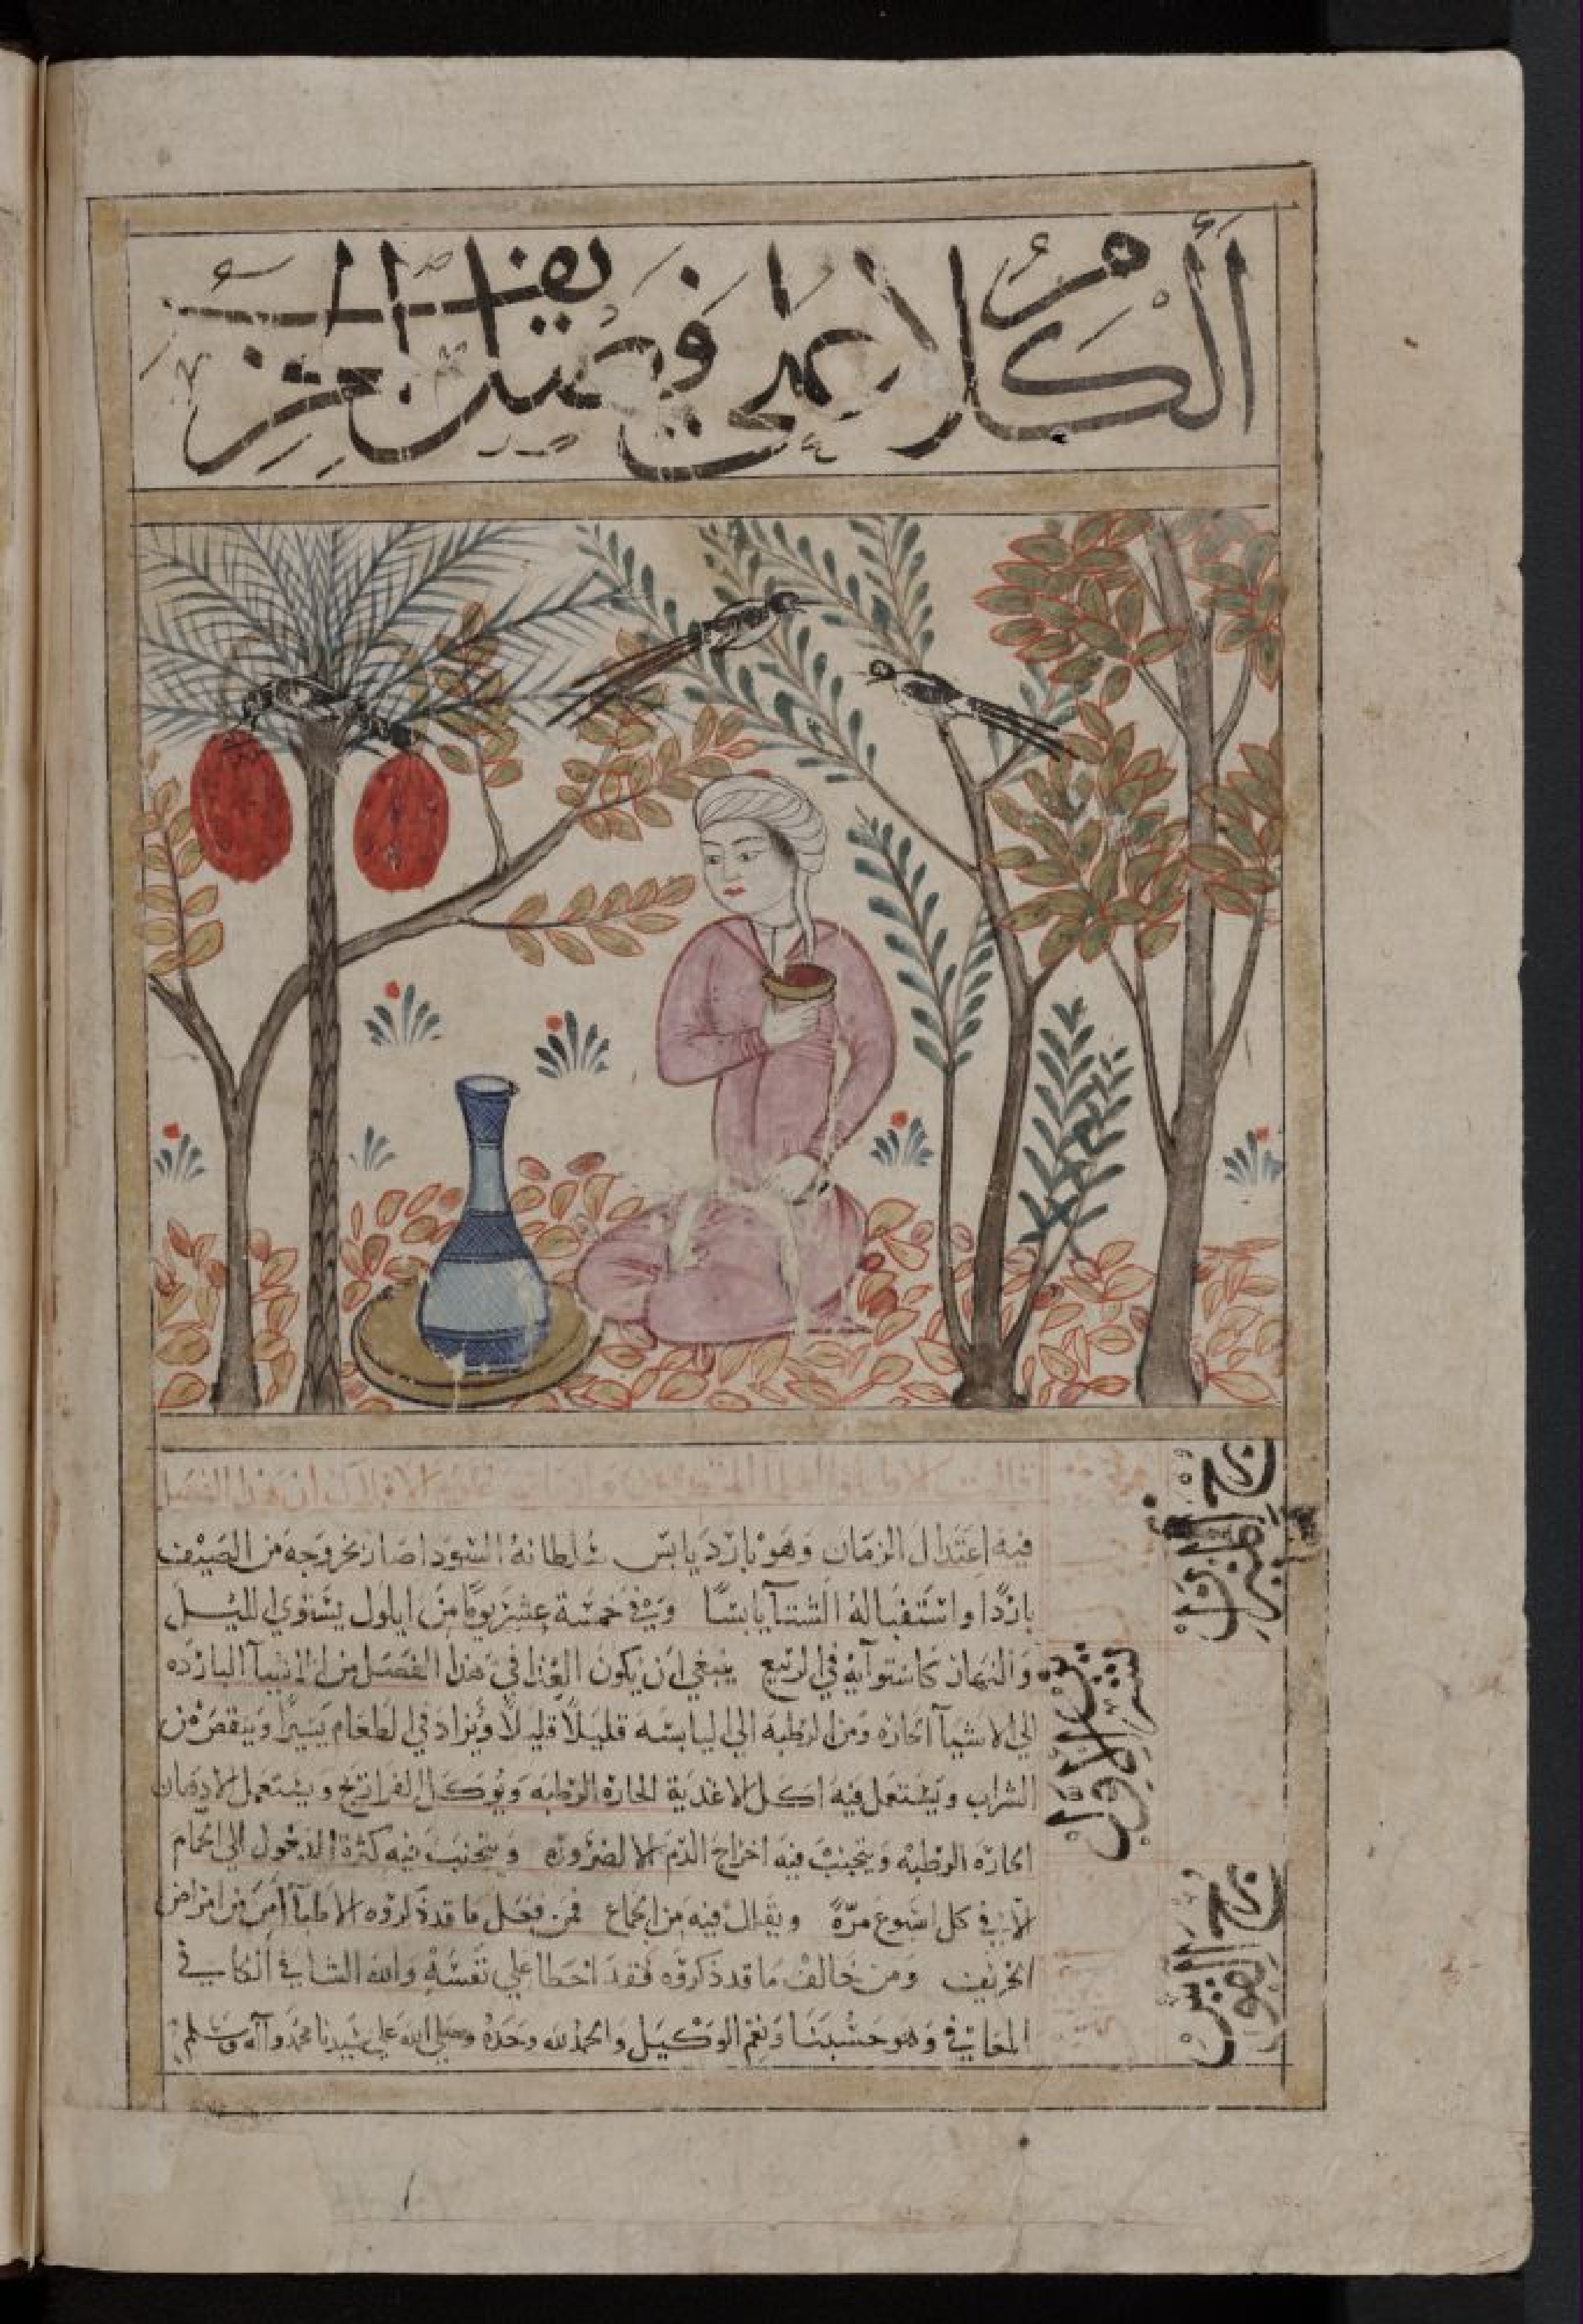 الكلام على فصل الخريف
قالت الاطبا والعلما المتقدمين ان هذا الفصل
فيه اعتدال الزمان وهو بارد يابس سلطانه السودا صار بخروجه من الصيف
باردًا واستقباله الشتا يابسًا وفي خمسة عشر يومًا من ايلول يستوي الليل
والنهار كاستوايه في الربيع ينبغي ان يكون الغذا في هذا الفصل من الاشيآ البارده
الي الاشيآ الحاره ومن الرطبه الي اليابسه قليلًا قليلًا ويزاد في الطعام يسيرًا وينقص من
الشراب ويستعمل فيه اكل الاغذية الحارة الرطبه ويوكل الفراريج ويستعمل الادهان
الحاره الرطبه ويتجنب فيه اخراج الدم الا لضروره ويتجنب فيه كثرة الدخول الي الحمام
الا في كل اسبوع مرّة ويقال فيه من الجماع فمن فعل ما قد ذكروه الاطبآ امن من امراض
الخريف ومن خالف ما قد ذكروه فقد اخطا علي نفسه والله الشافي الكافي
المعافي وهو حسبنا ونعم الوكيل والحمد لله وحده وصلي الله علي سيدنا محمد وآله وسلم
برج الميزان
تشرين الاول
برج القوس